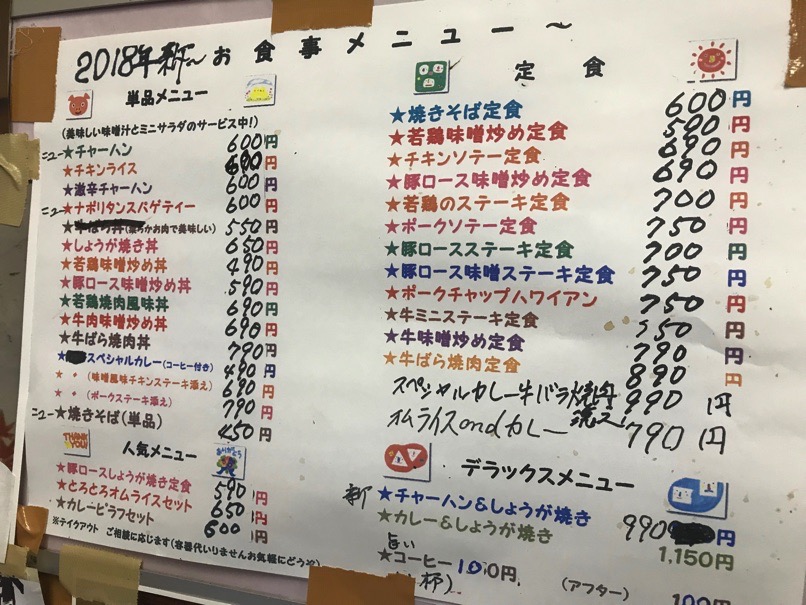 2018年新～お食事メニュー～
単品メニュー
(美味しい味噌汁とミニサラダのサービス中!)
ニュー★チャーハン 600円
★チキンライス 600円
★激辛チャーハン 600円
ニュー★ナポリタンスパゲティー 600円
★牛ばら丼(柔らかお肉で美味しい) 550円
★しょうが焼き丼 650円
★若鶏味噌炒め丼 490円
★豚ロース味噌炒め丼 590円
★若鶏焼肉風味丼 690円
★牛肉味噌炒め丼 690円
★牛ばら焼肉丼 790円
★スペシャルカレー(コーヒー付き) 490円
★ 〃 (味噌風味チキンステーキ添え) 690円
★ 〃 (ポークステーキ添え) 790円
ニュー★焼きそば(単品) 450円
THANK YOU!
人気メニュー
ありがとう
★豚ロースしょうが焼き定食 590円
★とろとろオムライスセット 650円
★カレーピラフセット 600円
※テイクアウト ご相談に応じます(容器代いりませんお気軽にどうぞ)
定食
★焼きそば定食 600円
★若鶏味噌炒め定食 590円
★チキンソテー定食 690円
★豚ロース味噌炒め定食 690円
★若鶏のステーキ定食 700円
★ポークソテー定食 750円
★豚ロースステーキ定食 700円
★豚ロース味噌ステーキ定食 750円
★ポークチャップハワイアン 750円
★牛ミニステーキ定食 550円
★牛味噌炒め定食 790円
★牛ばら焼肉定食 890円
スペシャルカレー牛バラ焼肉 990円
オムライスandカレー 790円
デラックスメニュー
新 ★チャーハン&しょうが焼き 990円
★カレー&しょうが焼き 1,150円
★コーヒー 100円
(一杯)
(アフター) 100円